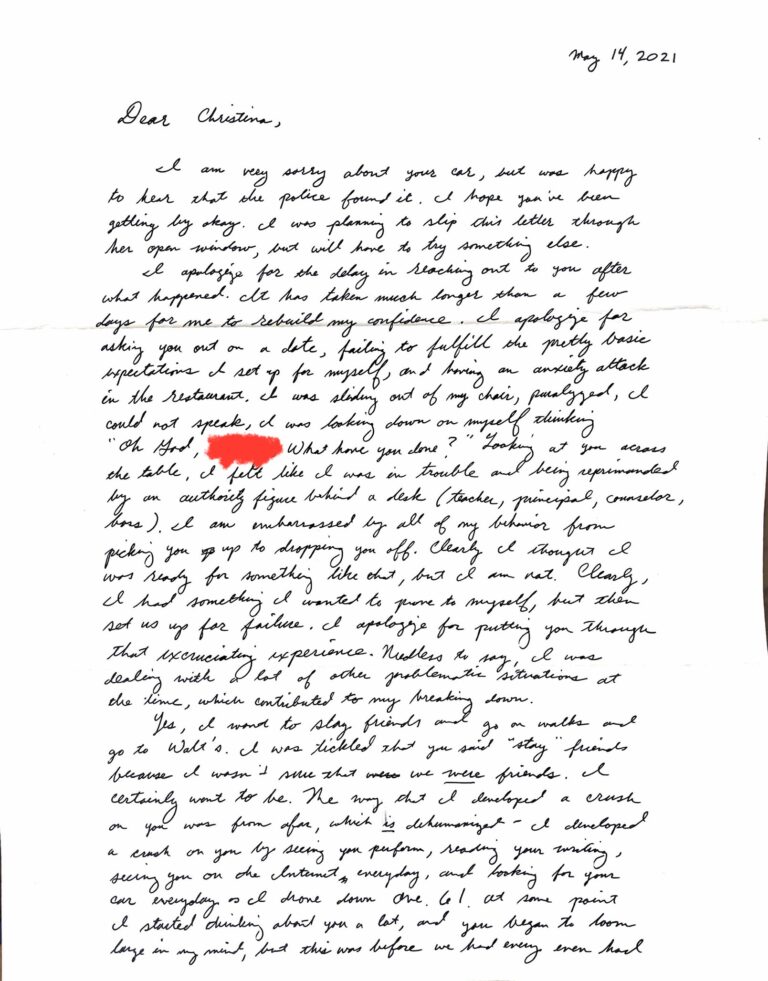 May 14, 2021
Dear Christina,
I am very sorry about your car, but was happy
to hear that the police found it. I hope you've been
getting by okay. I was planning to slip this letter through
her open window, but will have to try something else.
I apologize for the delay in reaching out to you after
what happened. It has taken much longer than a few
days for me to rebuild my confidence. I apologize for
asking you out on a date, failing to fulfill the pretty basic
expectations I set up for myself, and having an anxiety attack
in the restaurant. I was sliding out of my chair, paralyzed, I
could not speak, I was looking down on myself thinking
"Oh God, What have you done?" Looking at you across
the table, I felt like I was in trouble and being reprimanded
by an authority figure behind a desk (teacher, principal, counselor,
boss). I am embarrassed by all of my behavior from
picking you up to dropping you off. Clearly I thought I
was ready for something like that, but I am not. Clearly,
I had something I wanted to prove to myself, but then
set us up for failure. I apologize for putting you through
that excruciating experience. Needless to say, I was
dealing with a lot of other problematic situations at
the time, which contributed to my breaking down.
Yes, I want to stay friends and go on walks and
go to Walt's. I was tickled that you said "stay" friends
because I wasn't sure that we were friends. I
certainly want to be. The way that I developed a crush
on you was from afar, which is dehumanized - I developed
a crush on you by seeing you perform, reading your writing,
seeing you on the Internet, everyday, and looking for your
car everyday as I drove down Ave. 61. at some point
I started thinking about you a lot, and you began to loom
large in my mind, but this was before we had every even had